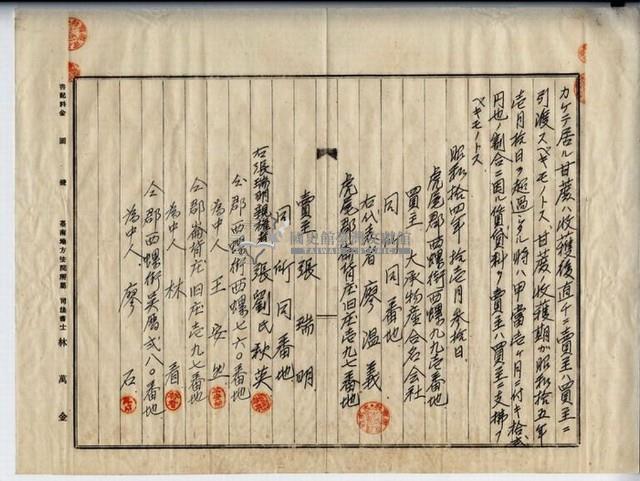 カケテ居ル甘蔗ハ收穫後直チニ賣主ハ買主ニ
引渡スベキモノトス甘蔗ノ收穫期ガ昭和拾五年
壱月拾日ヲ超過シタル時ハ甲當壱ヶ月ニ付キ拾貳
円也ノ割合ニ因ル賃貸料ヲ賣主ハ買主ニ支拂フ
ベキモノトス
昭和拾四年拾壱月参拾日
虎尾郡西螺街西螺九九壱番地
買主 大承物産合名会社
同 同番地
右代表者 廖溫義
虎尾郡崙背庄旧庄壱九七番地
賣主 張瑞明
同所同番地
右張瑞明親權者 張劉氏秋英
仝郡西螺街西螺七六〇番地
為中人 王安
仝郡崙背庄旧庄壱九七番地
為中人 林看
仝郡西螺街吳厝弐八〇番地
為中人 廖石
書記料金 圓 錢 臺南地方法院所屬 司法書士 林萬金
國史館臺灣文獻館